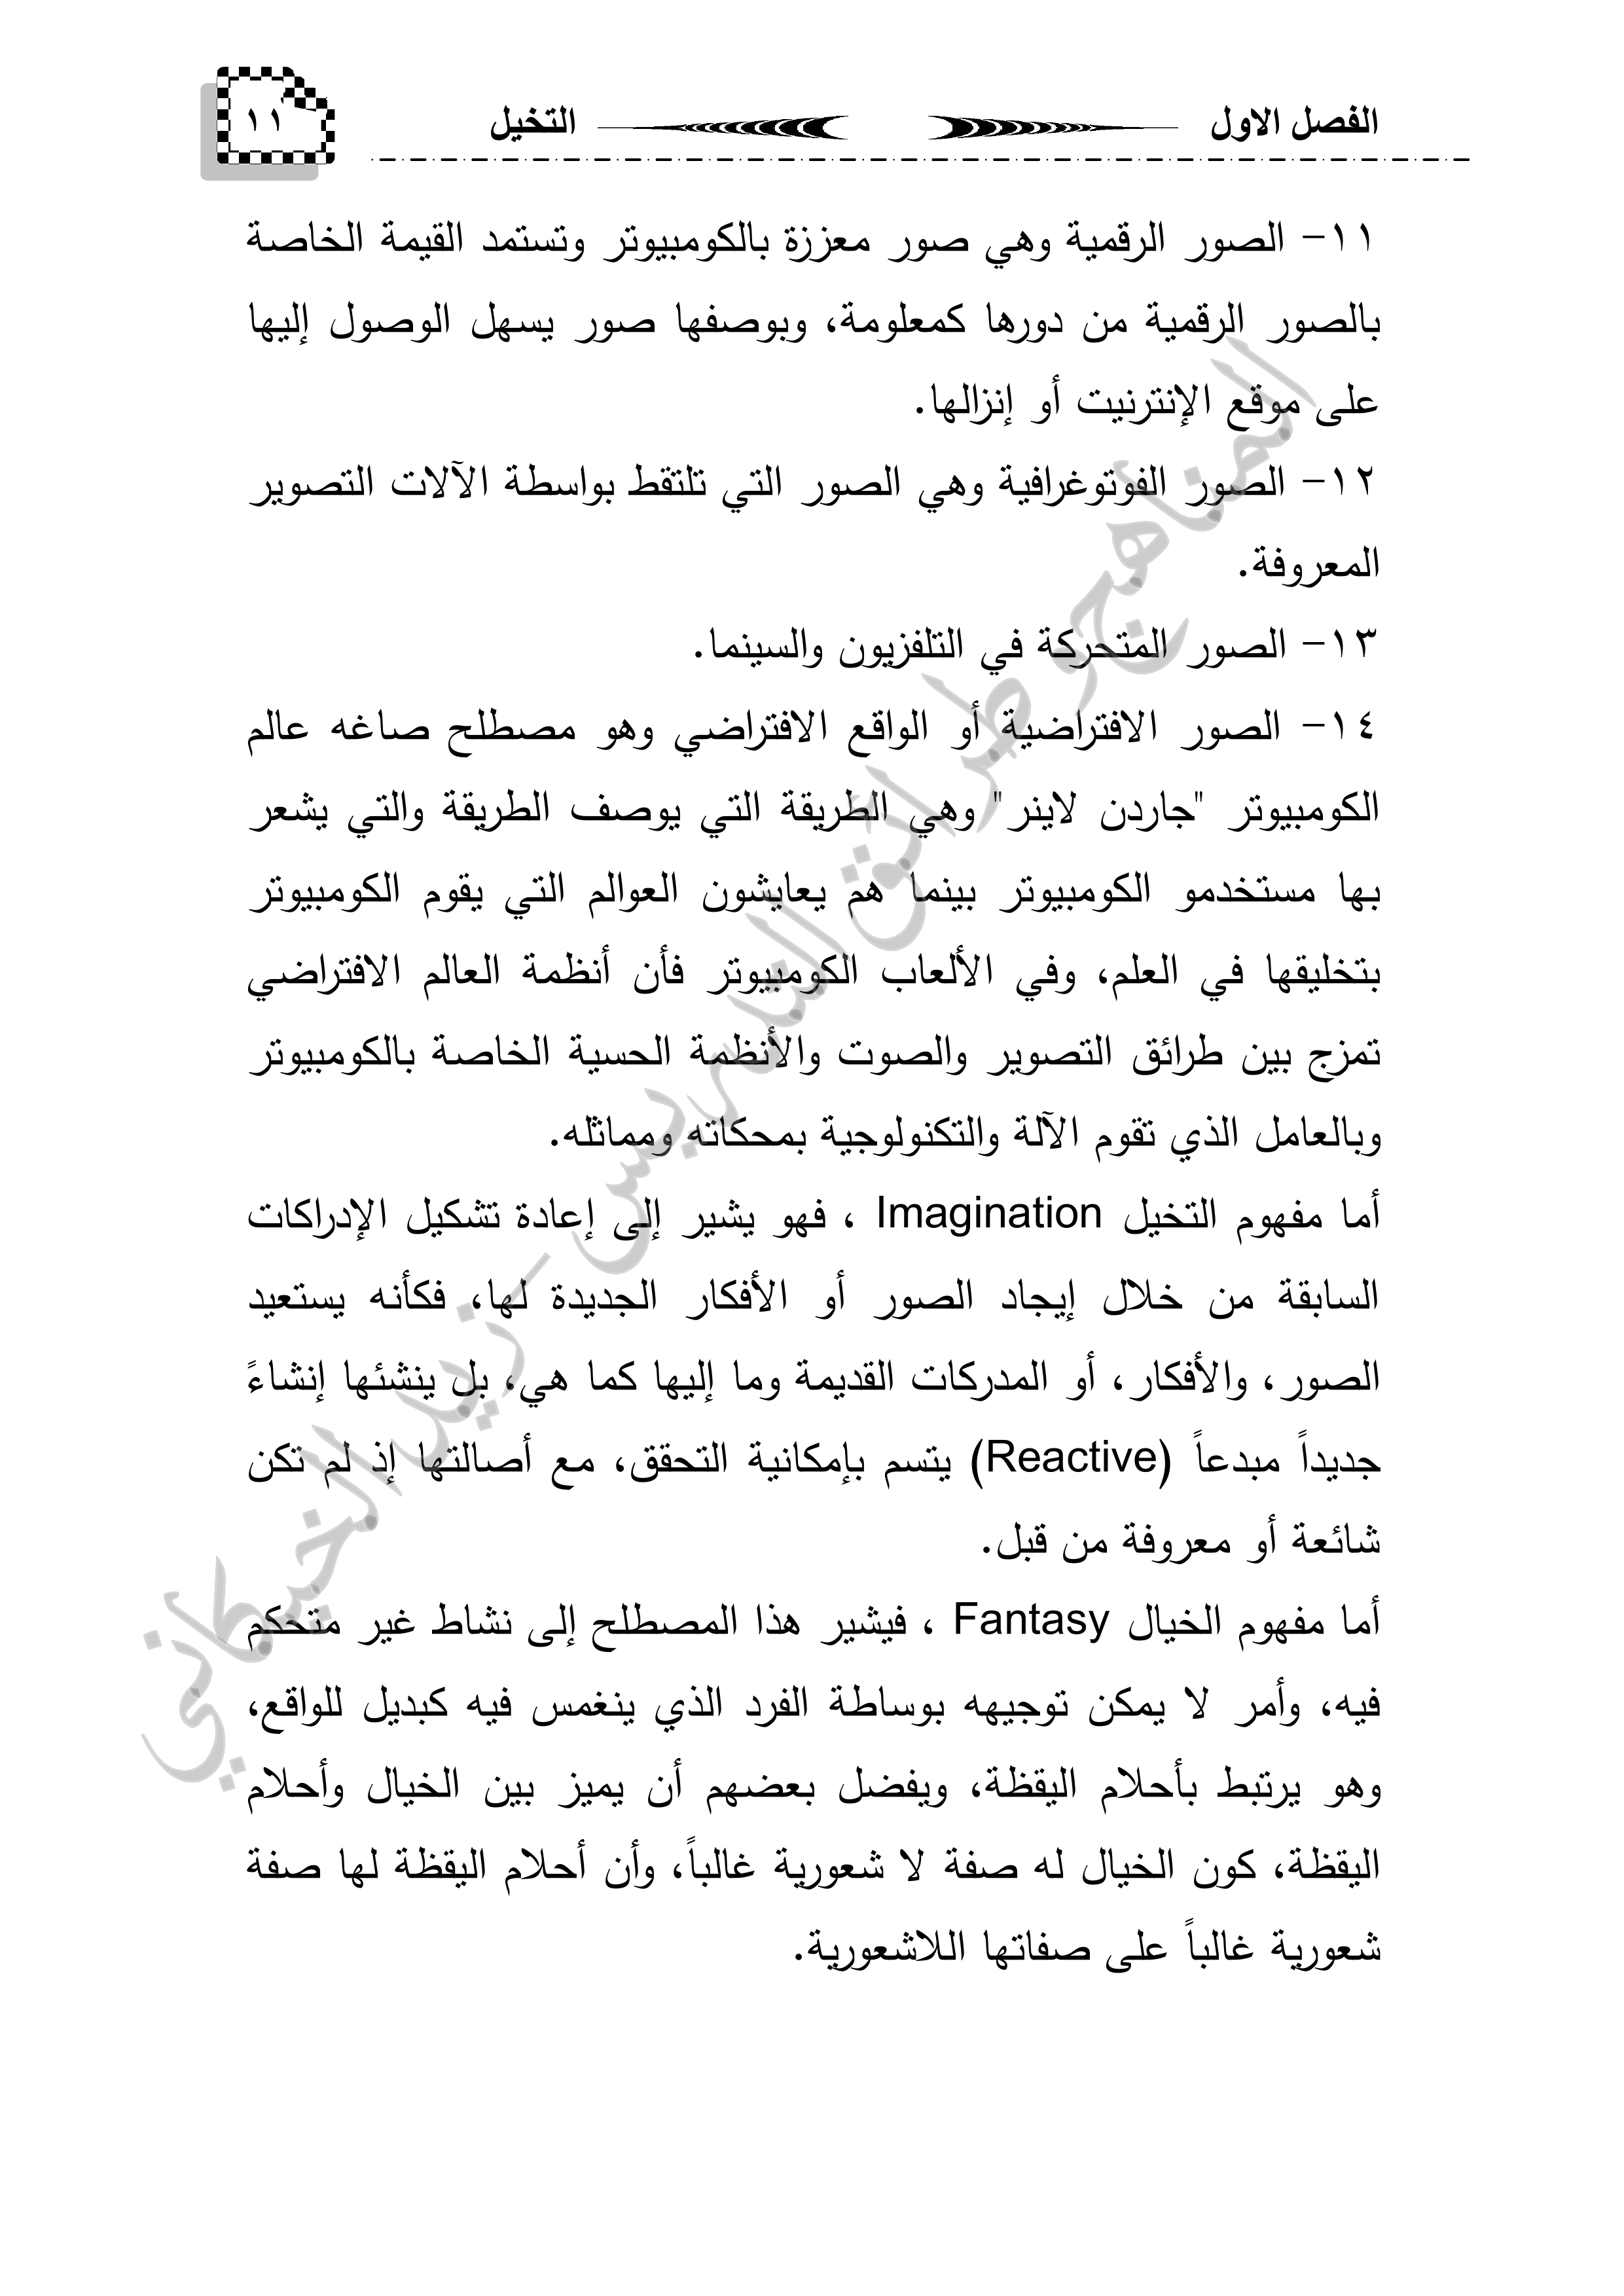 الفصل الاول التخيل ١١
١١- الصور الرقمية وهي صور معززة بالكومبيوتر وتستمد القيمة الخاصة
بالصور الرقمية من دورها كمعلومة، وبوصفها صور يسهل الوصول إليها
على موقع الإنترنيت أو إنزالها.
١٢- الصور الفوتوغرافية وهي الصور التي تلتقط بواسطة الآلات التصوير
المعروفة.
١٣- الصور المتحركة في التلفزيون والسينما.
١٤- الصور الافتراضية أو الواقع الافتراضي وهو مصطلح صاغه عالم
الكومبيوتر "جاردن لاينر" وهي الطريقة التي يوصف الطريقة والتي يشعر
بها مستخدمو الكومبيوتر بينما هم يعايشون العوالم التي يقوم الكومبيوتر
بتخليقها في العلم، وفي الألعاب الكومبيوتر فأن أنظمة العالم الافتراضي
تمزج بين طرائق التصوير والصوت والأنظمة الحسية الخاصة بالكومبيوتر
وبالعامل الذي تقوم الآلة والتكنولوجية بمحكاته ومماثله.
أما مفهوم التخيل Imagination ، فهو يشير إلى إعادة تشكيل الإدراكات
السابقة من خلال إيجاد الصور أو الأفكار الجديدة لها، فكأنه يستعيد
الصور، والأفكار، أو المدركات القديمة وما إليها كما هي، بل ينشئها إنشاءً
جديداً مبدعاً (Reactive) يتسم بإمكانية التحقق، مع أصالتها إذ لم تكن
شائعة أو معروفة من قبل.
أما مفهوم الخيال Fantasy ، فيشير هذا المصطلح إلى نشاط غير متحكم
فيه، وأمر لا يمكن توجيهه بوساطة الفرد الذي ينغمس فيه كبديل للواقع،
وهو يرتبط بأحلام اليقظة، ويفضل بعضهم أن يميز بين الخيال وأحلام
اليقظة، كون الخيال له صفة لا شعورية غالباً، وأن أحلام اليقظة لها صفة
شعورية غالباً على صفاتها اللاشعورية.
المناهج وطرائق التدريس - زيد الخيكاني